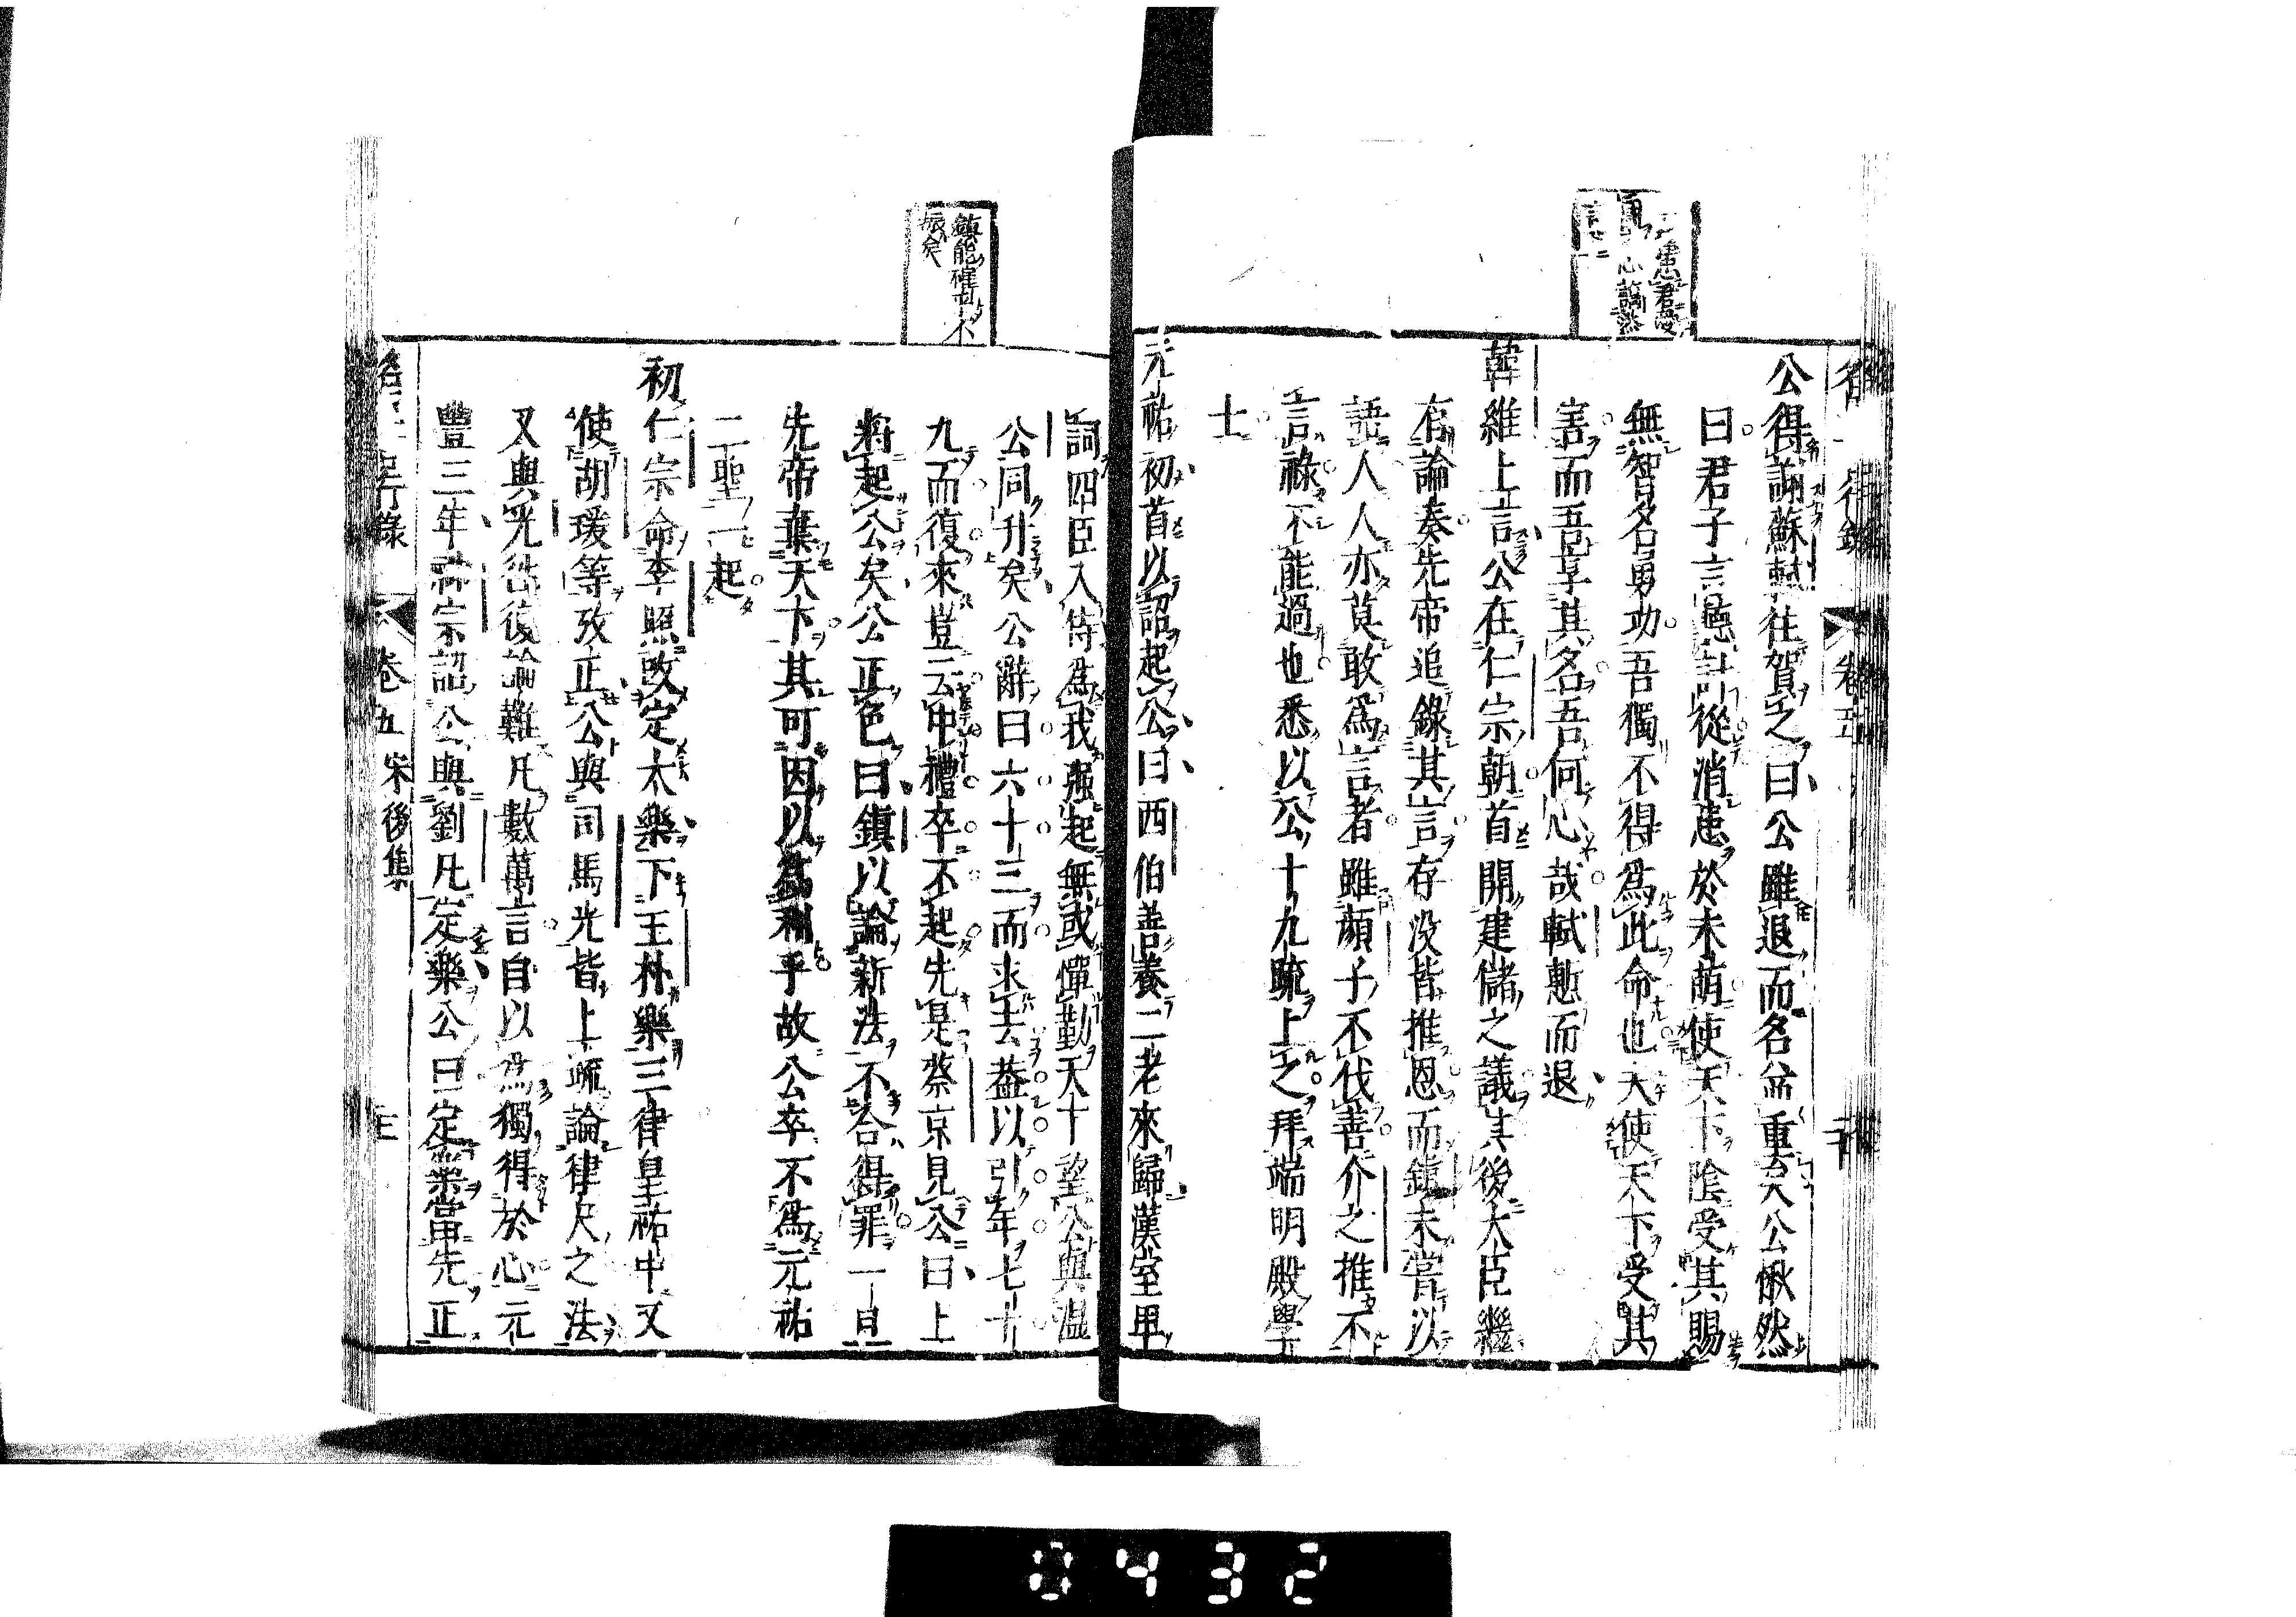 公得謝蘇軾往賀之曰公雖退而名益重矣公愀然
曰君子言聽計從消患於未萌使天下陰受其賜
無智名勇功吾獨不得爲此命也夫使天下受其
害而吾享其名吾何心哉軾慙而退
韓維上言公在仁宗朝首開建儲之議其後大臣繼
有論奏先帝追錄其言存没皆推恩而鎮未嘗以
語人人亦莫敢爲言者雖顔子不伐善介之推不
言祿不能過也悉以公十九疏上之拜端明殿學
士
元祐初首以詔起公曰西伯善養二老來歸漢室卑
詞四臣入侍爲我強起無或憚勤天十望公與温
公同升矣公辭曰六十三而求去葢以引年七十
九而復來豈云中禮卒不起先是蔡京見公曰上
將起公矣公正色曰鎮以論新法不合得罪一旦
先帝棄天下其可因以爲利乎故公卒不爲元祐
二聖一起
初仁宗命李照改定大樂下王朴樂三律皇祐中又
使胡瑗等攷正公與司馬光皆上疏論律尺之法
又與光徃復論難凡數萬言自以爲獨得於心元
豐三年神宗詔公與劉凡定樂公曰定樂當先正
行錄 卷五 宋後集
鎮能確廿不
振矣
0432